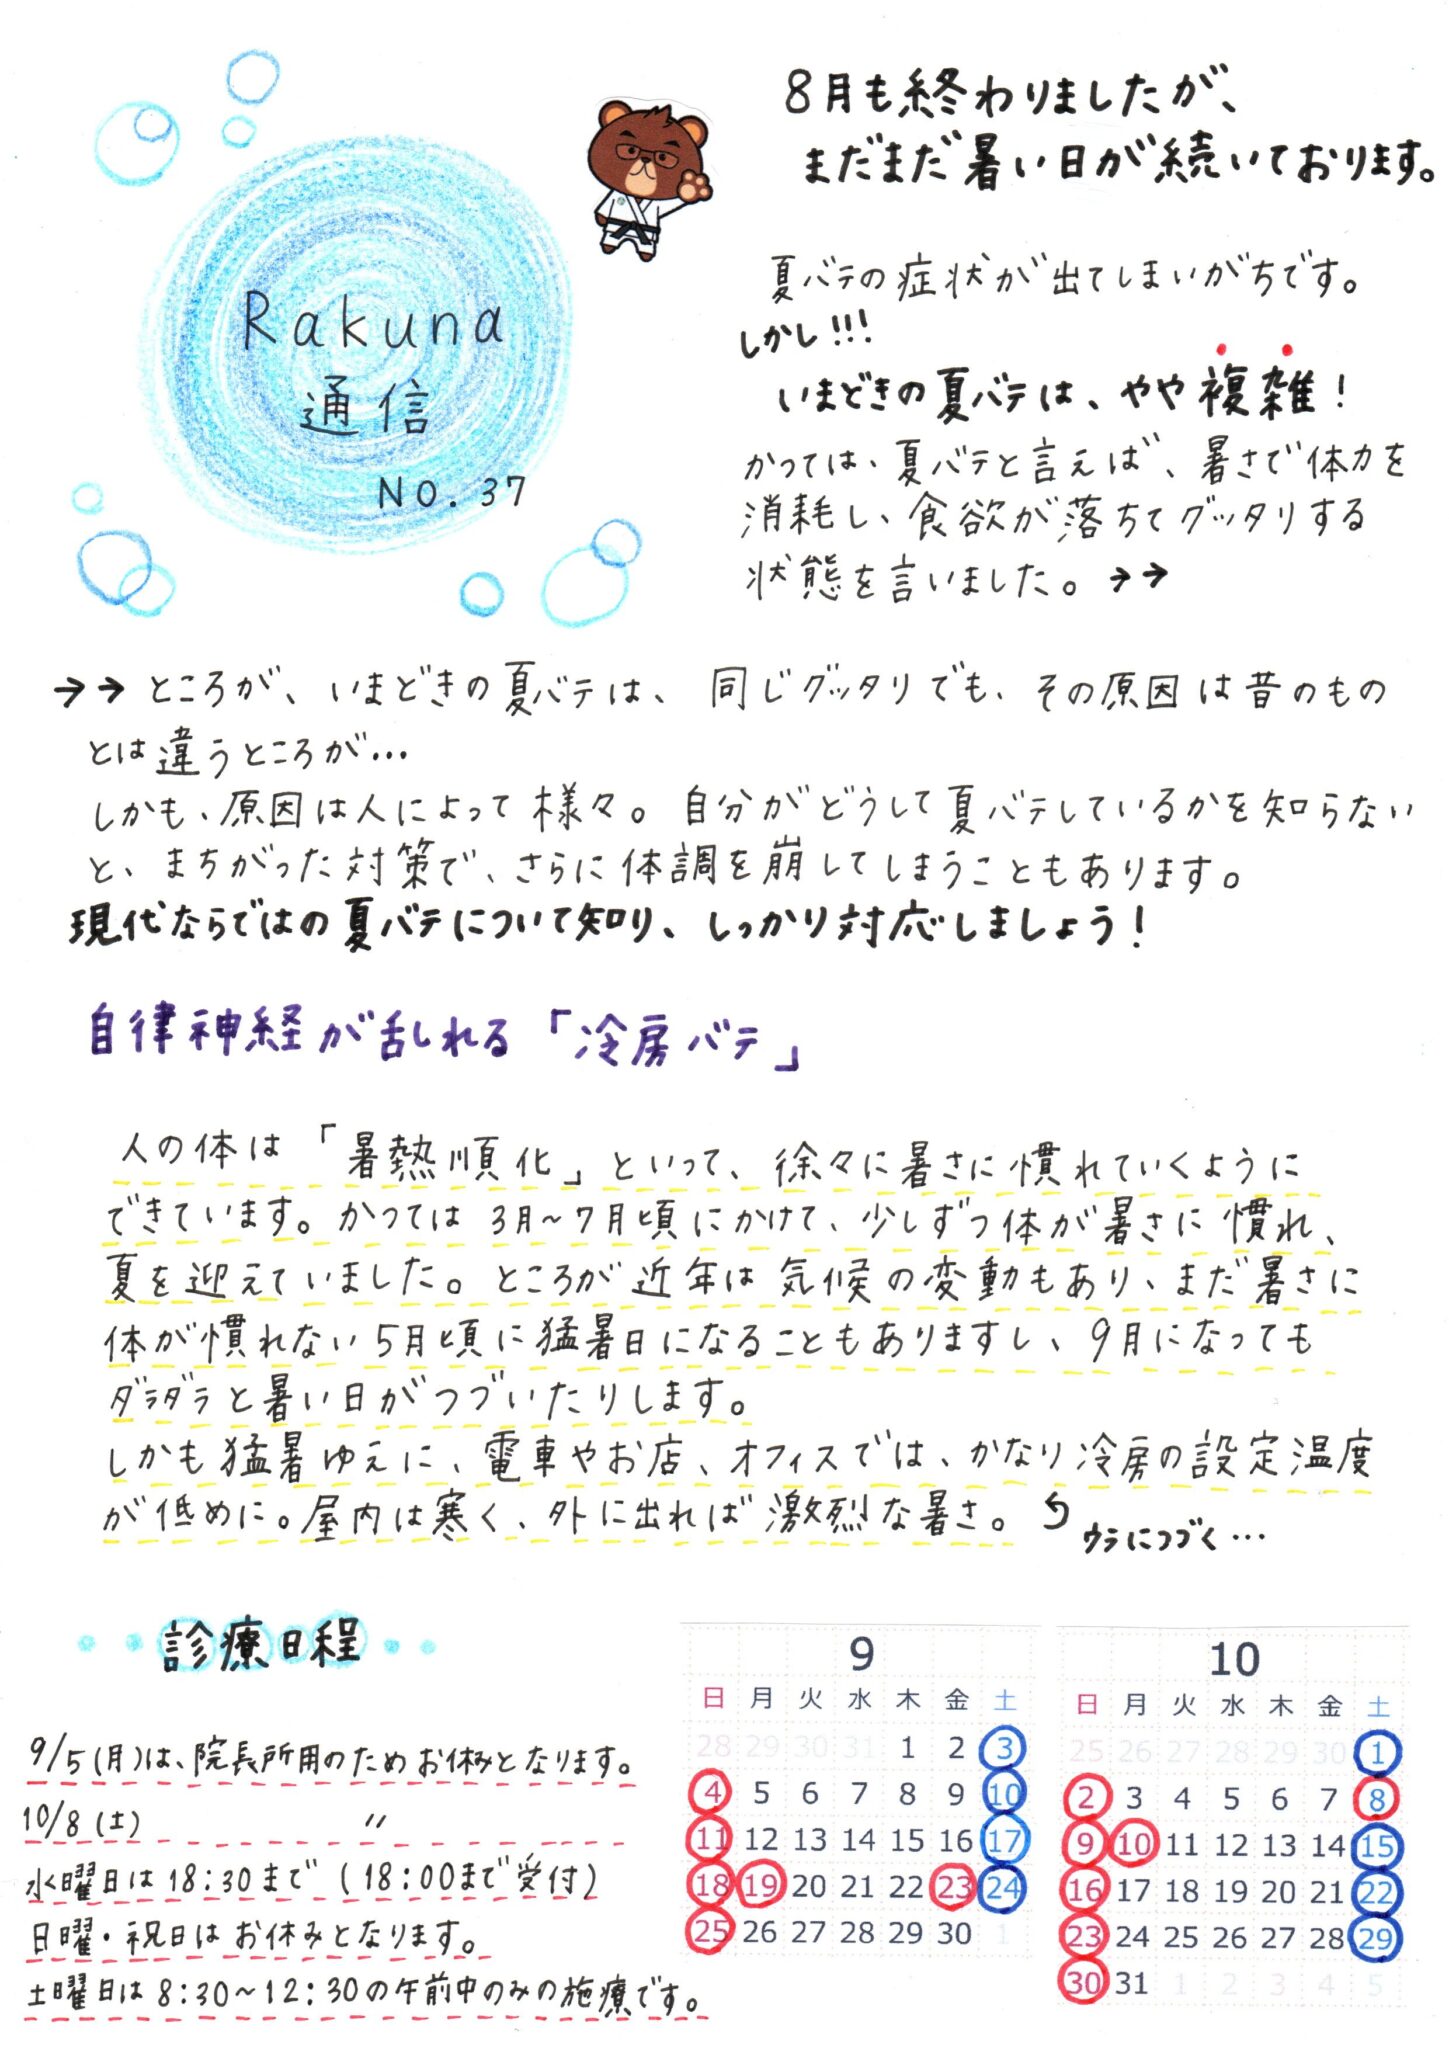 Rakuna
通信
NO.37
8月も終わりましたが、
まだまだ暑い日が続いております。
夏バテの症状が出てしまいがちです。
しかし!!!
いまどきの夏バテは、やや複雑!
かつては、夏バテと言えば、暑さで体力を
消耗し、食欲が落ちてグッタリする
状態を言いました。→→
→→ところが、いまどきの夏バテは、同じグッタリでも、その原因は昔のもの
とは違うところが…
しかも、原因は人によって様々。自分がどうして夏バテしているかを知らない
と、まちがった対策で、さらに体調を崩してしまうこともあります。
現代ならではの夏バテについて知り、しっかり対応しましょう!
自律神経が乱れる「冷房バテ」
人の体は「暑熱順化」といって、徐々に暑さに慣れていくように
できています。かつては3月~7月頃にかけて、少しずつ体が暑さに慣れ、
夏を迎えていました。ところが近年は気候の変動もあり、まだ暑さに
体が慣れない5月頃に猛暑日になることもありますし、9月になっても
ダラダラと暑い日がつづいたりします。
しかも猛暑ゆえに、電車やお店、オフィスでは、かなり冷房の設定温度
が低めに。屋内は寒く、外に出れば激烈な暑さ。
ウラにつづく…
診療日程
9/5(月)は、院長所用のためお休みとなります。
10/8(土) 〃
水曜日は18:30まで(18:00まで受付)
日曜・祝日はお休みとなります。
土曜日は8:30~12:30の午前中のみの施療です。
9
日 月 火 水 木 金 土
28 29 30 31 1 2 3
4 5 6 7 8 9 10
11 12 13 14 15 16 17
18 19 20 21 22 23 24
25 26 27 28 29 30 1
10
日 月 火 水 木 金 土
25 26 27 28 29 30 1
2 3 4 5 6 7 8
9 10 11 12 13 14 15
16 17 18 19 20 21 22
23 24 25 26 27 28 29
30 31 1 2 3 4 5